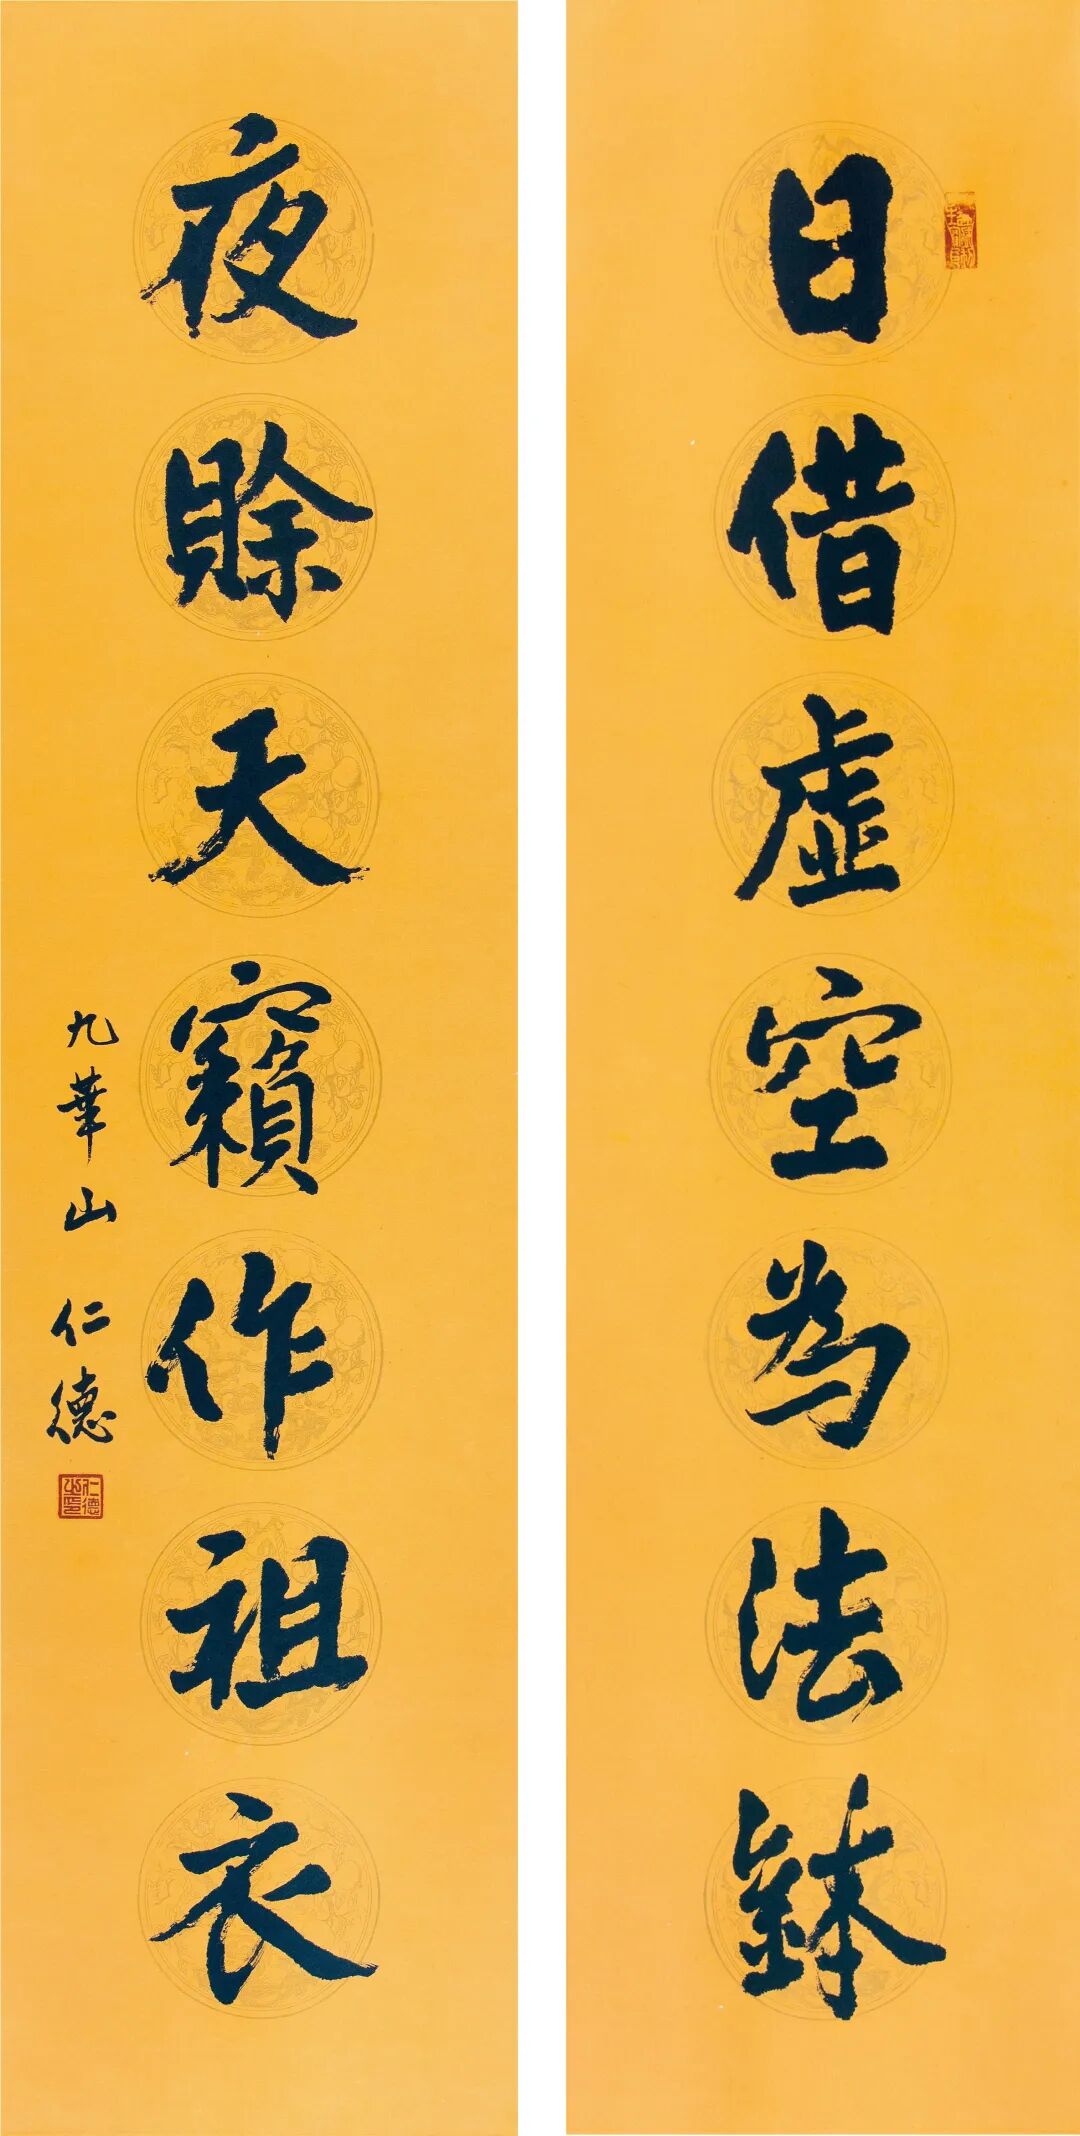 日借虛空為法鉢
夜賒天籟作祖衣
九華山 仁德
仁德之印